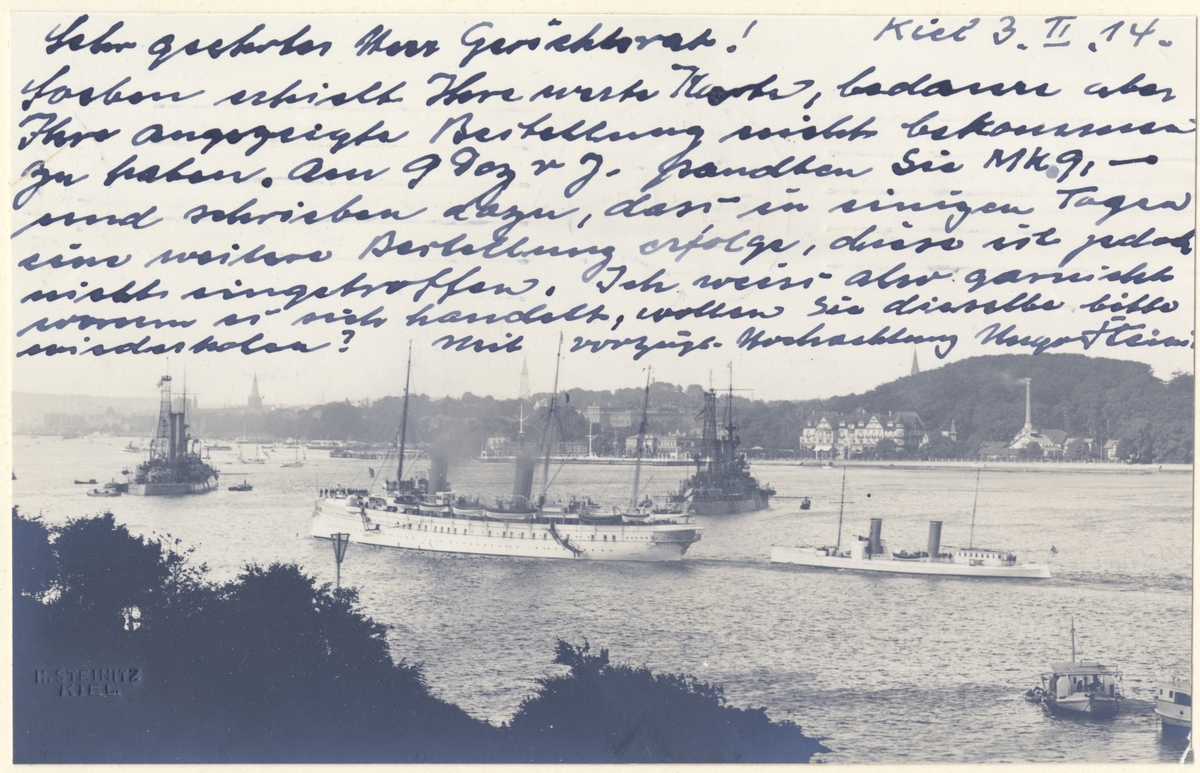 Kiel 3. II. 14.
Sehr geehrter Herr Gerichtsrat!
Soeben erhielt Ihre werte Karte, bedaure aber
Ihre angezeigte Bestellung nicht bekommen
zu haben. Am 9 Dez v J. sandten Sie Mk. 9,—
und schrieben dazu, dass in einigen Tagen
eine weitere Bestellung erfolge, diese ist jedoch
nicht eingetroffen. Ich weiss also garnicht
worum es sich handelt, wollen Sie dieselbe bitte
wiederholen? Mit vorzügl. Hochachtung Hugo
H. STEINITZ
KIEL